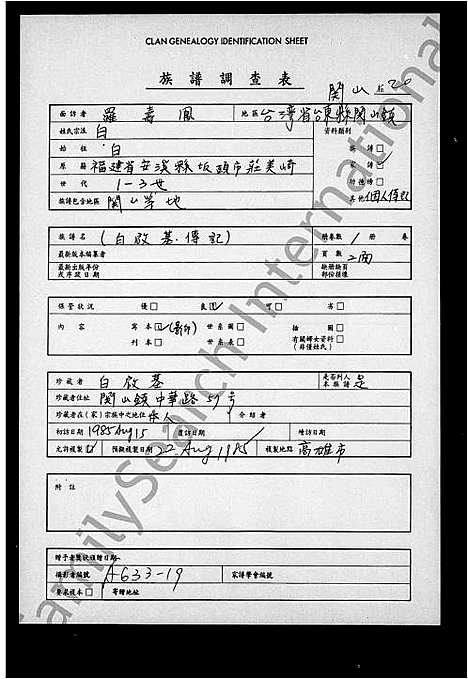 CLAN GENEALOGY IDENTIFICATION SHEET
族譜調查表
関山 20
面訪者 羅壽鳳 地區 台湾省台東縣関山鎮
姓氏宗派 白 資料類別
始祖 白 族譜 □
原籍 福建省安溪縣坂頭市莊美崎 家譜 ☑
世代 1-3世 功德榜 □
族譜包含地區 関山等地 其他 個人傳記
族譜名 (白啟基傳記) 冊卷數 1 冊 卷
最新版本編纂者 頁數 2面
最新出版年份或序跋日期 缺冊缺頁部份孫壞
保管狀況 優□ 良☑ 可□ 劣□
內容 寫本☑(影印) 世系圖□ 插圖□
刊本□ 世系表□ 有關婦女資料(非僅姓氏)□
珍藏者 白啟基 是否列入本族譜 是
珍藏者住址 関山鎮中華路57号
珍藏者在(家)宗族中之地位 本人 介紹者
初訪日期 1985 Aug 15 覆訪日期 皣訪日期
允許複製☑ 預擬複製日期 22 Aug 1985 複製地點 高雄市
附註
贈予者獎狀頒贈日期
攝影者編號 A633-19 家譜學會編號
要求複本□ 寄贈地址
FamilySearch International